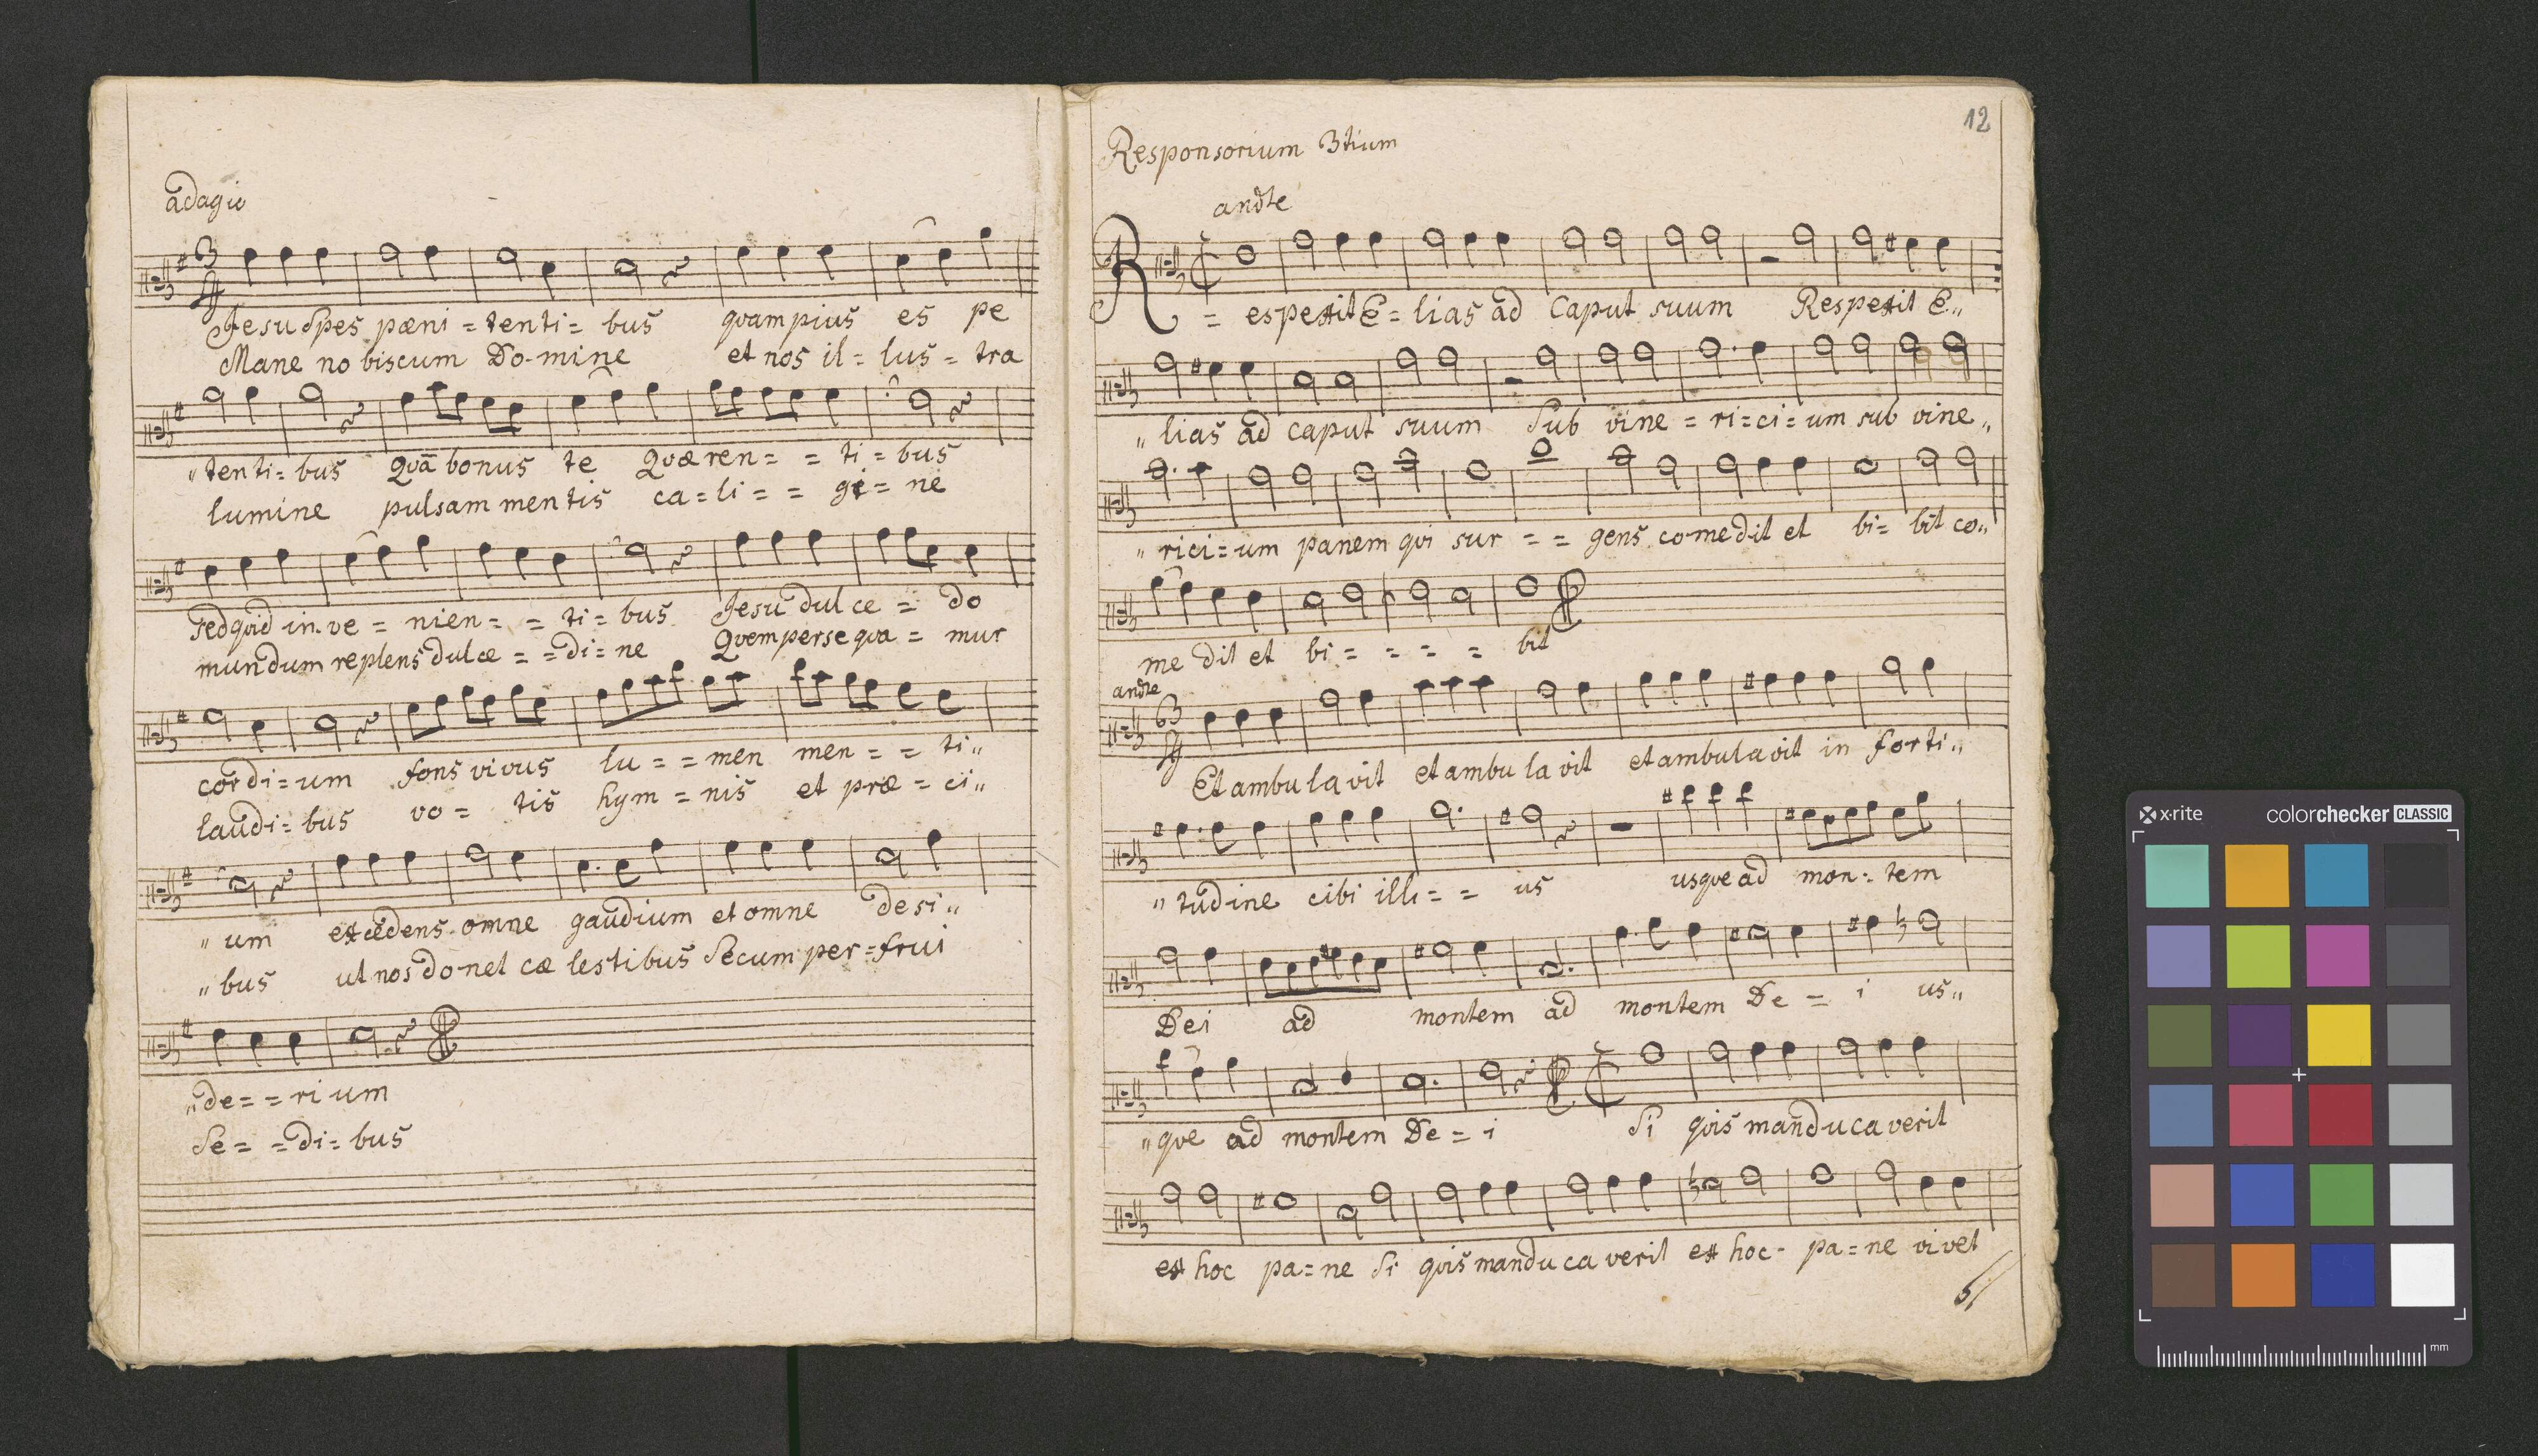 adagio
Jesu Spes pæni = tenti = bus quam pius es pe
Mane no biscum Do - mine et nos il = lus = tra
„ tenti = bus Qvā bonus te Qværen = = ti = bus
lumine pulsam mentis ca = li = = gi = ne
sed qvid in - ve = nien = = ti = bus Jesu dulce = do
mundum replens dulce = = di = ne Qvem perse qva = mur
cordi = um fons vivus lu = = men men = = ti „
laudi = bus vo = tis hym = nis et præ = ci „
„ um excedens omne gaudium et omne desi „
„ bus ut nos donet cæ lestibus Secum per = frui
„ de = = ri um
Se = = di = bus
12
Responsorium 3tium
andte
R = espexit E = lias ad Caput suum Respexit E „
„ lias ad caput suum Sub vine = ri = ci = um sub vine „
„ rici = um panem qvi sur = = gens comedit et bi = bit co „
me dit et bi = = = = bit
andte
Et ambu la vit et ambu la vit et ambulavit in forti „
„ tudine cibi illi = = us usqve ad mon = tem
Dei ad montem ad montem De = i us „
„ qve ad montem De = i Si qvis manducaverit
ex hoc pa = ne Si qvis manducaverit ex hoc - pa = ne vivet